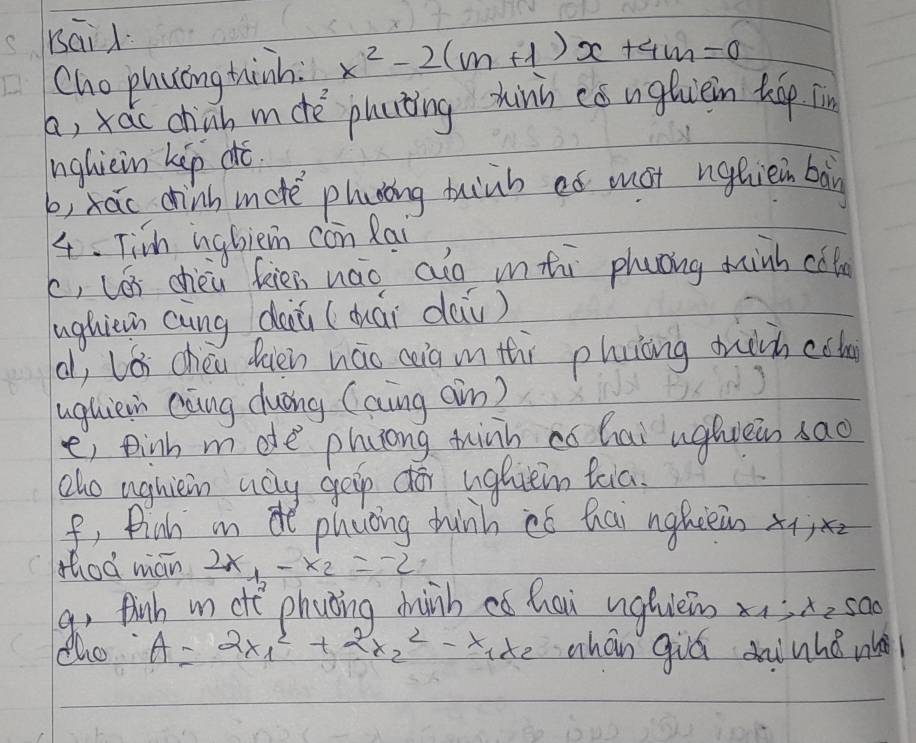 Bài 1:
Cho phương trình: x² - 2(m + 1)x + 4m = 0
a, xác định m để phương trình có nghiệm kép. Tìm
nghiệm kép đó.
b, xác định m để phương trình có một nghiệm bằng
4. Tính nghiệm còn lại
c, Với điều kiện nào của m thì phương trình có hai
nghiệm cùng dấu (trái dấu)
d, Với điều kiện nào của m thì phương trình có hai
nghiệm cùng dương (cùng âm)
e, Định m để phương trình có hai nghiệm sao
cho nghiệm này gấp đôi nghiệm kia.
f, Định m để phương trình có hai nghiệm x₁; x₂
thoả mãn 2x₁ - x₂ = -2
g, Định m để phương trình có hai nghiệm x₁; x₂ sao
cho A = 2x₁² + 2x₂² - x₁x₂ nhận giá trị nhỏ nhất